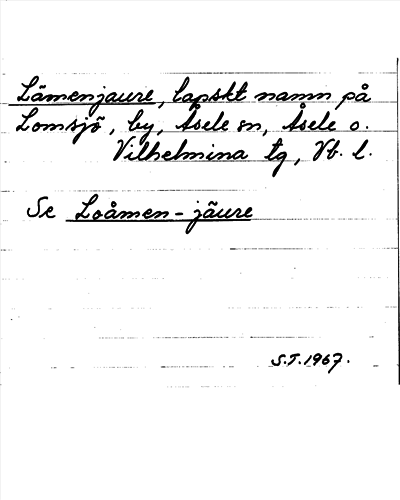 Lämenjaure, lapskt namn på
Lomsjö, by, Åsele sn, Åsele o.
Vilhelmina tg, Vb. l.
Se Loåmen-jäure
S.T. 1967.